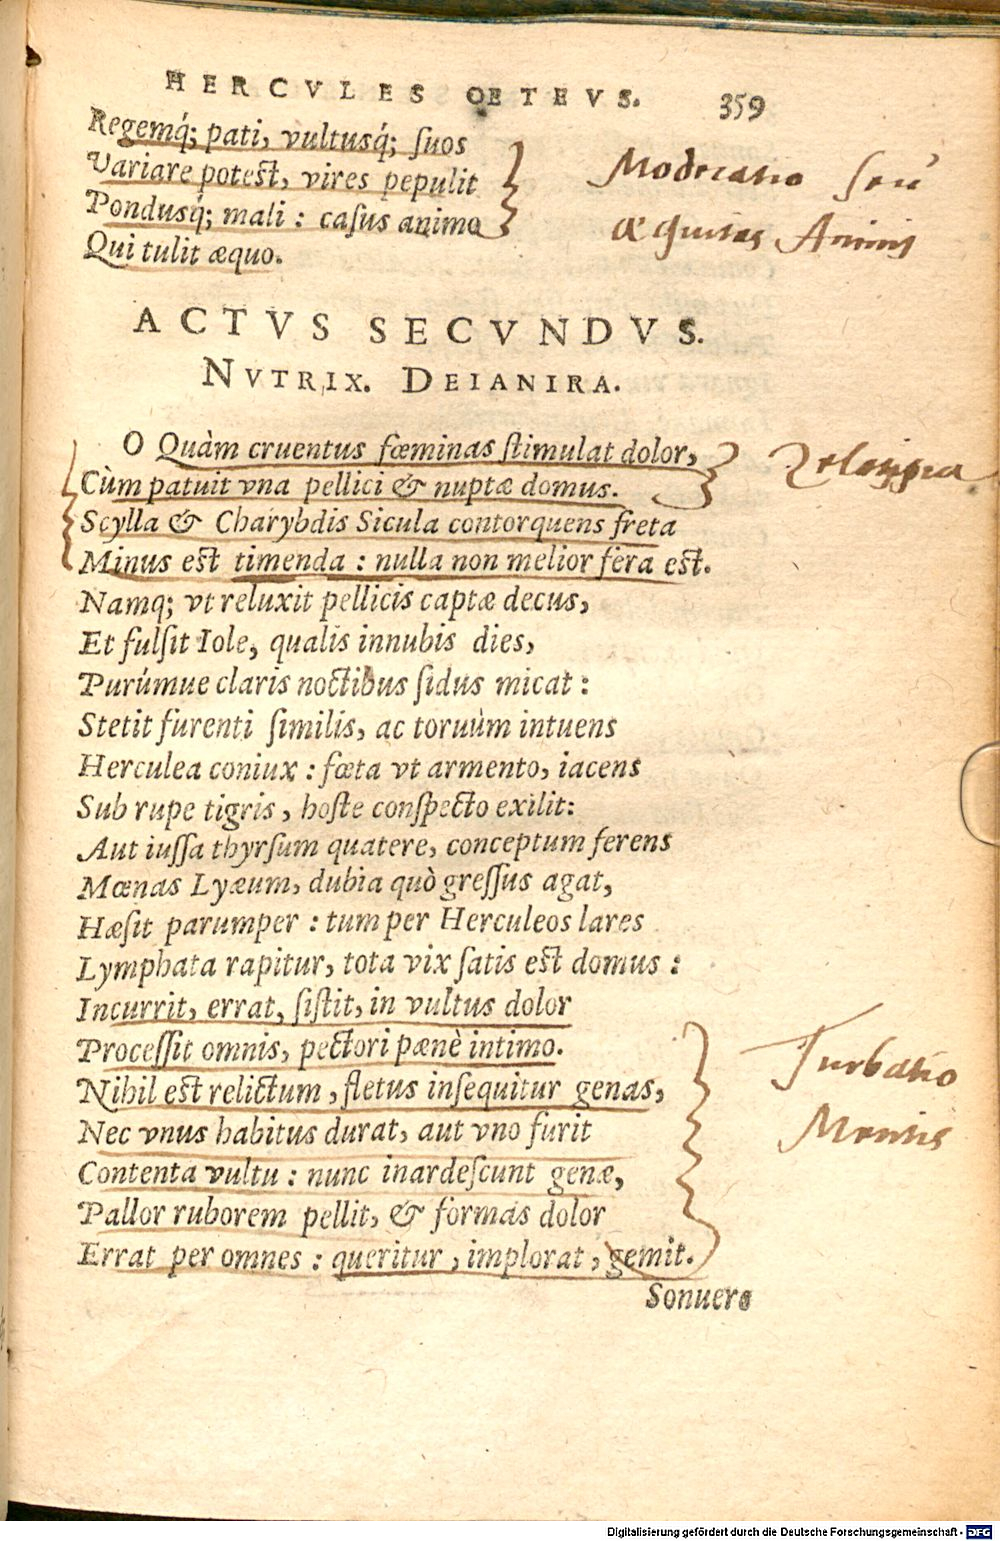 HERCVLES OETEVS. 359
Regemq́; pati, vultusq́; ſuos
Variare poteſt, vires pepulit
Pondusq́; mali: caſus animo
Qui tulit æquo.
Moderatio ſeu
æquitas Animi
ACTVS SECVNDVS.
NVTRIX. DEIANIRA.
O Quàm cruentus fœminas ſtimulat dolor,
Cùm patuit vna pellici & nuptæ domus.
Scylla & Charybdis Sicula contorquens freta
Minus eſt timenda: nulla non melior fera eſt.
Zelotypia
Namq; vt reluxit pellicis captæ decus,
Et fulſit Iole, qualis innubis dies,
Purúmue claris noctibus ſidus micat:
Stetit furenti ſimilis, ac toruùm intuens
Herculea coniux: fœta vt armento, iacens
Sub rupe tigris, hoſte conſpecto exilit:
Aut iuſſa thyrſum quatere, conceptum ferens
Mœnas Lyæum, dubia quò greſſus agat,
Hæſit parumper: tum per Herculeos lares
Lymphata rapitur, tota vix ſatis eſt domus:
Incurrit, errat, ſiſtit, in vultus dolor
Proceſſit omnis, pectori pænè intimo.
Nihil eſt relictum, fletus inſequitur genas,
Nec vnus habitus durat, aut vno furit
Contenta vultu: nunc inardeſcunt genæ,
Pallor ruborem pellit, & formas dolor
Errat per omnes: queritur, implorat, gemit.
Turbatio
Mentis
Sonuere
Digitalisierung gefördert durch die Deutsche Forschungsgemeinschaft - DFG